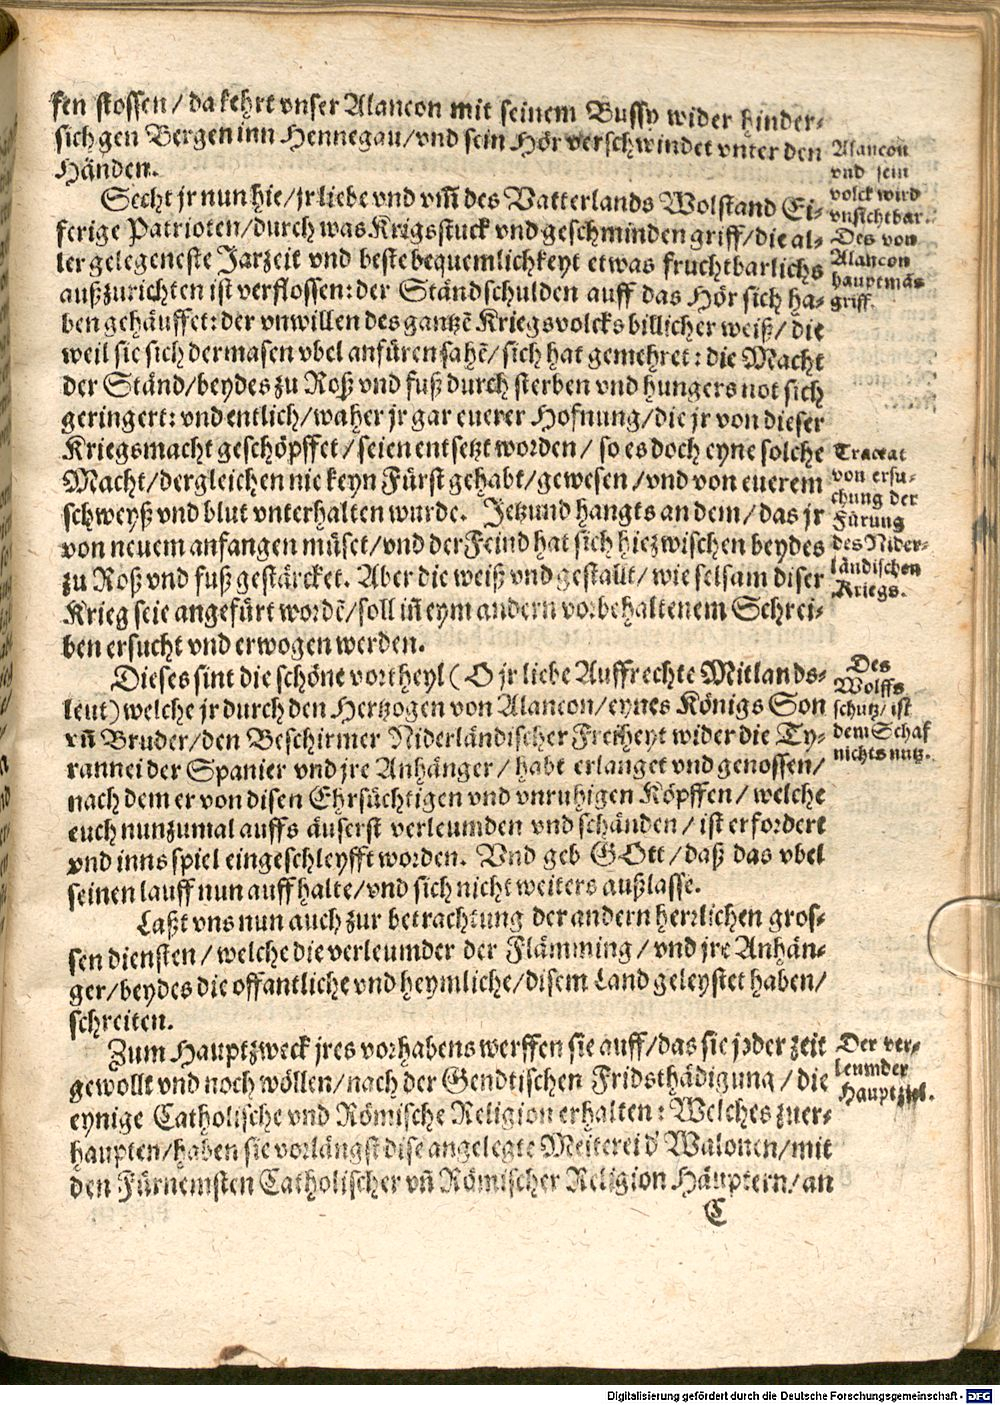 sen stossen / da kehrt vnser Alancon mit seinem Bussy wider hinder-
sich gen Bergen inn Hennegau / vnd sein Hör verschwindet vnter den
Händen.
Alancon
vnd sein
volck wird
vnsichtbar.
Secht jr nun hie / jr liebe vnd vm̃ des Vatterlands Wolstand Ei-
ferige Patrioten / durch was Krigsstuck vnd geschwinden griff / die al-
ler gelegeneste Jarzeit vnd beste bequemlichkeyt etwas fruchtbarlichs
außzurichten ist verflossen: der Ständ schulden auff das Hör sich ha-
ben gehäuffet: der vnwillen des gantzē Kriegsvolcks billicher weiß / die
weil sie sich dermasen vbel anfüren sahē / sich hat gemehret: die Macht
der Ständ / beydes zu Roß vnd fuß durch sterben vnd hungers not sich
geringert: vnd entlich / waher jr gar euerer Hofnung / die jr von dieser
Kriegsmacht geschöpffet / seien entsetzt worden / so es doch eyne solche
Macht / dergleichen nie keyn Fürst gehabt / gewesen / vnd von euerem
schweyß vnd blut vnterhalten wurde. Jetzund hangts an dem / das jr
von neuem anfangen müset / vnd der Feind hat sich hiezwischen beydes
zu Roß vnd fuß gestärcket. Aber die weiß vnd gestallt / wie selsam diser
Krieg seie angefürt wordē / soll iñ eym andern vorbehaltenem Schrei-
ben ersucht vnd erwogen werden.
Des von
Alancon
hauptmās
griff.
Tractat
von ersu-
chung der
Fürung
des Nider-
ländischen
Kriegs.
Dieses sint die schöne vortheyl (O jr liebe Auffrechte Mitlands-
leut) welche jr durch den Hertzogen von Alancon / eynes Königs Son
vñ Bruder / den Beschirmer Niderländischer Freiheyt wider die Ty-
rannei der Spanier vnd jre Anhänger / habt erlanget vnd genossen /
nach dem er von disen Ehrsüchtigen vnd vnruhigen Köpffen / welche
euch nunzumal auffs äuserst verleumden vnd schänden / ist erfordert
vnd inns spiel eingeschleyfft worden. Vnd geb GOtt / daß das vbel
seinen lauff nun auffhalte / vnd sich nicht weiters außlasse.
Des
Wolffs
schutz / ist
dem Schaf
nichts nutz.
Laßt vns nun auch zur betrachtung der andern herrlichen gros-
sen diensten / welche die verleumder der Flämming / vnd jre Anhän-
ger / beydes die offantliche vnd heymliche / disem Land geleystet haben /
schreiten.
Zum Hauptzweck jres vorhabens werffen sie auff / das sie jder zeit
gewollt vnd noch wöllen / nach der Gendtischen Fridsthädigung / die
eynige Catholische vnd Römische Religion erhalten: Welches zuer-
haupten / haben sie vorlängst dise angelegte Meiterei d' Walonen / mit
den Fürnemsten Catholischer vñ Römischer Religion Häuptern / an
Der ver-
leumder
Hauptziel.
C
Digitalisierung gefördert durch die Deutsche Forschungsgemeinschaft - DFG